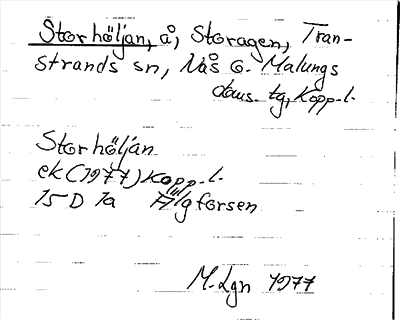 Storhöljan, å, Storagen, Tran-
strands sn, Nås o. Malungs
doms. tg, Kopp. l.
Storhöljan
ek (1977) Kopp. l.
15 D 1a Fulgforsen
M. Lgn 1977